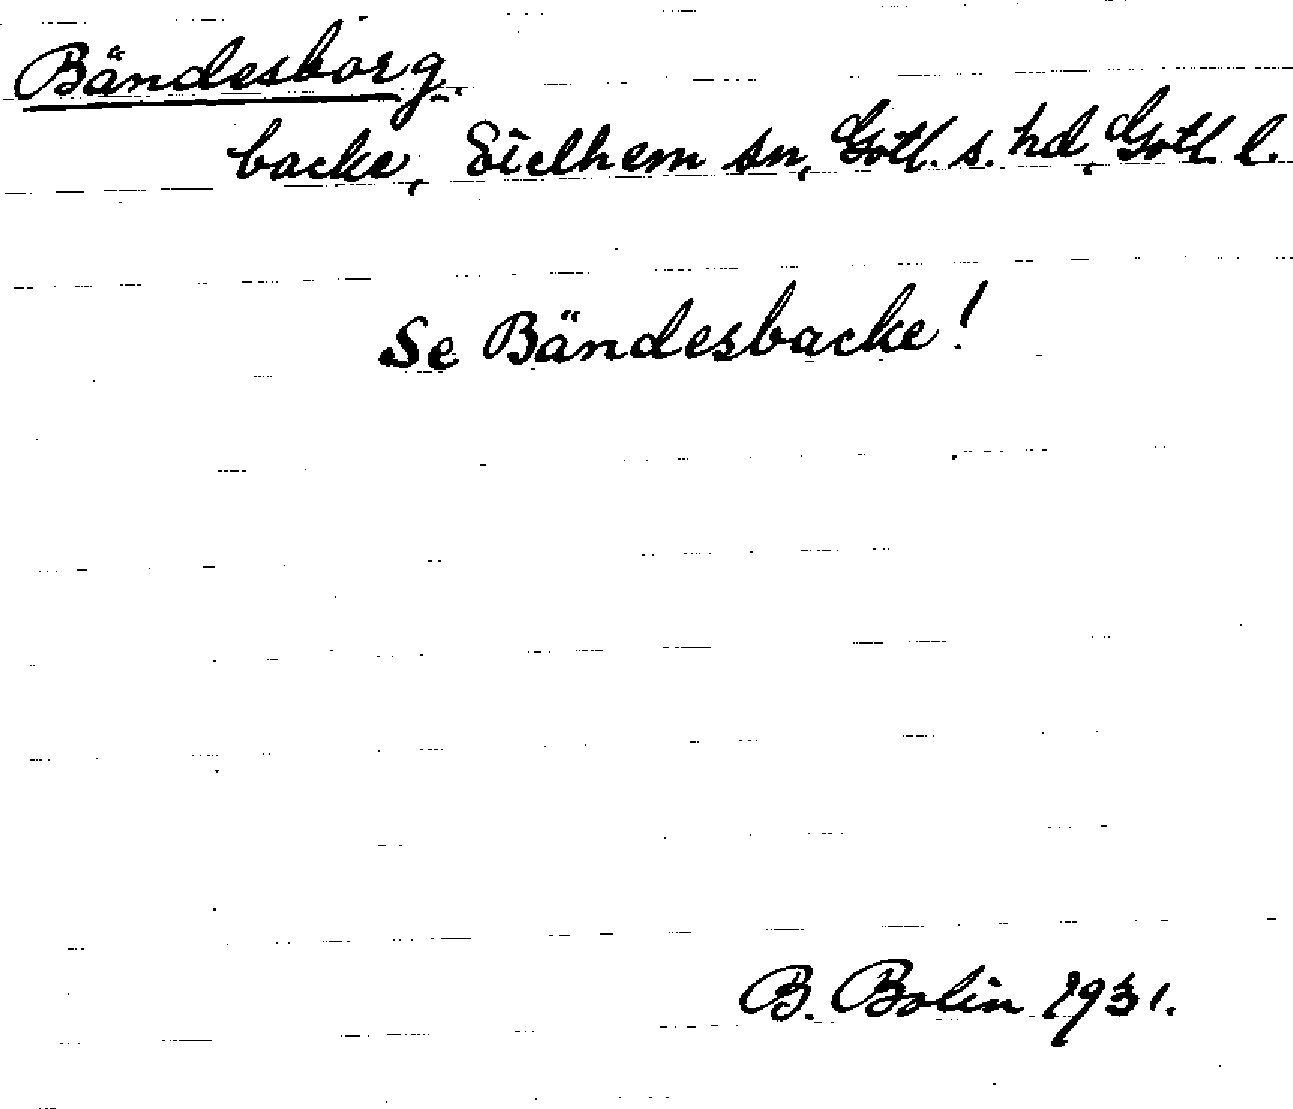 Bändesborg
backe, Eielhem sn, Gotl. s. hd, Gotl l.
Se Bändesbacke!
B. Bolin 1931.